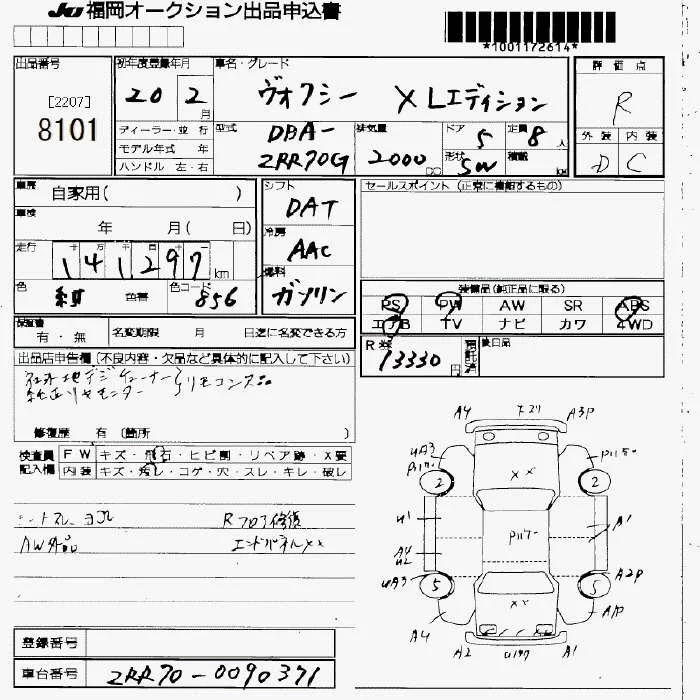 JU 福岡オークション出品申込書
*1001172614*
出品番号
[2207]
8101
初年度登録年月
20 2月
車名・グレード
ヴォクシー XLエディション
ディーラー・並行
モデル年式 年
ハンドル 左・右
型式
DBA-
ZRR70G
排気量
2000 CC
ドア
5
形状
SW
定員
8人
積載
評価点
R
外装 内装
D C
車歴
自家用( )
車検
年 月( 日)
走行
141297 km
色
色替
色コード
856
シフト
DAT
冷房
AAC
燃料
ガソリン
セールスポイント (正常に機能するもの)
装備品(純正品に限る)
PS PW AW SR ABS
エアB TV ナビ カワ 4WD
R券
13330円
預託済
後日品
保証書
有・無
名変期限 月 日迄に名変できる方
出品店申告欄(不良内容・欠品など具体的に記入して下さい)
社外地デジチューナー
リモコン
純正リヤモニター
修復歴 有 (箇所 )
検査員
記入欄
FW キズ・飛石・ヒビ割・リペア跡・X要
内装 キズ・汚レ・コゲ・穴・スレ・キレ・破レ
シートスレ ヨゴレ
Rフロア修復
AW外品
エンドパネルXX
A4
A3P
UA3
2
XX
2
U1
A1
A4
U2
UA3
5
XX
5
A2P
A4
A1P
A2
A1
登録番号
車台番号
ZRR70-0090371